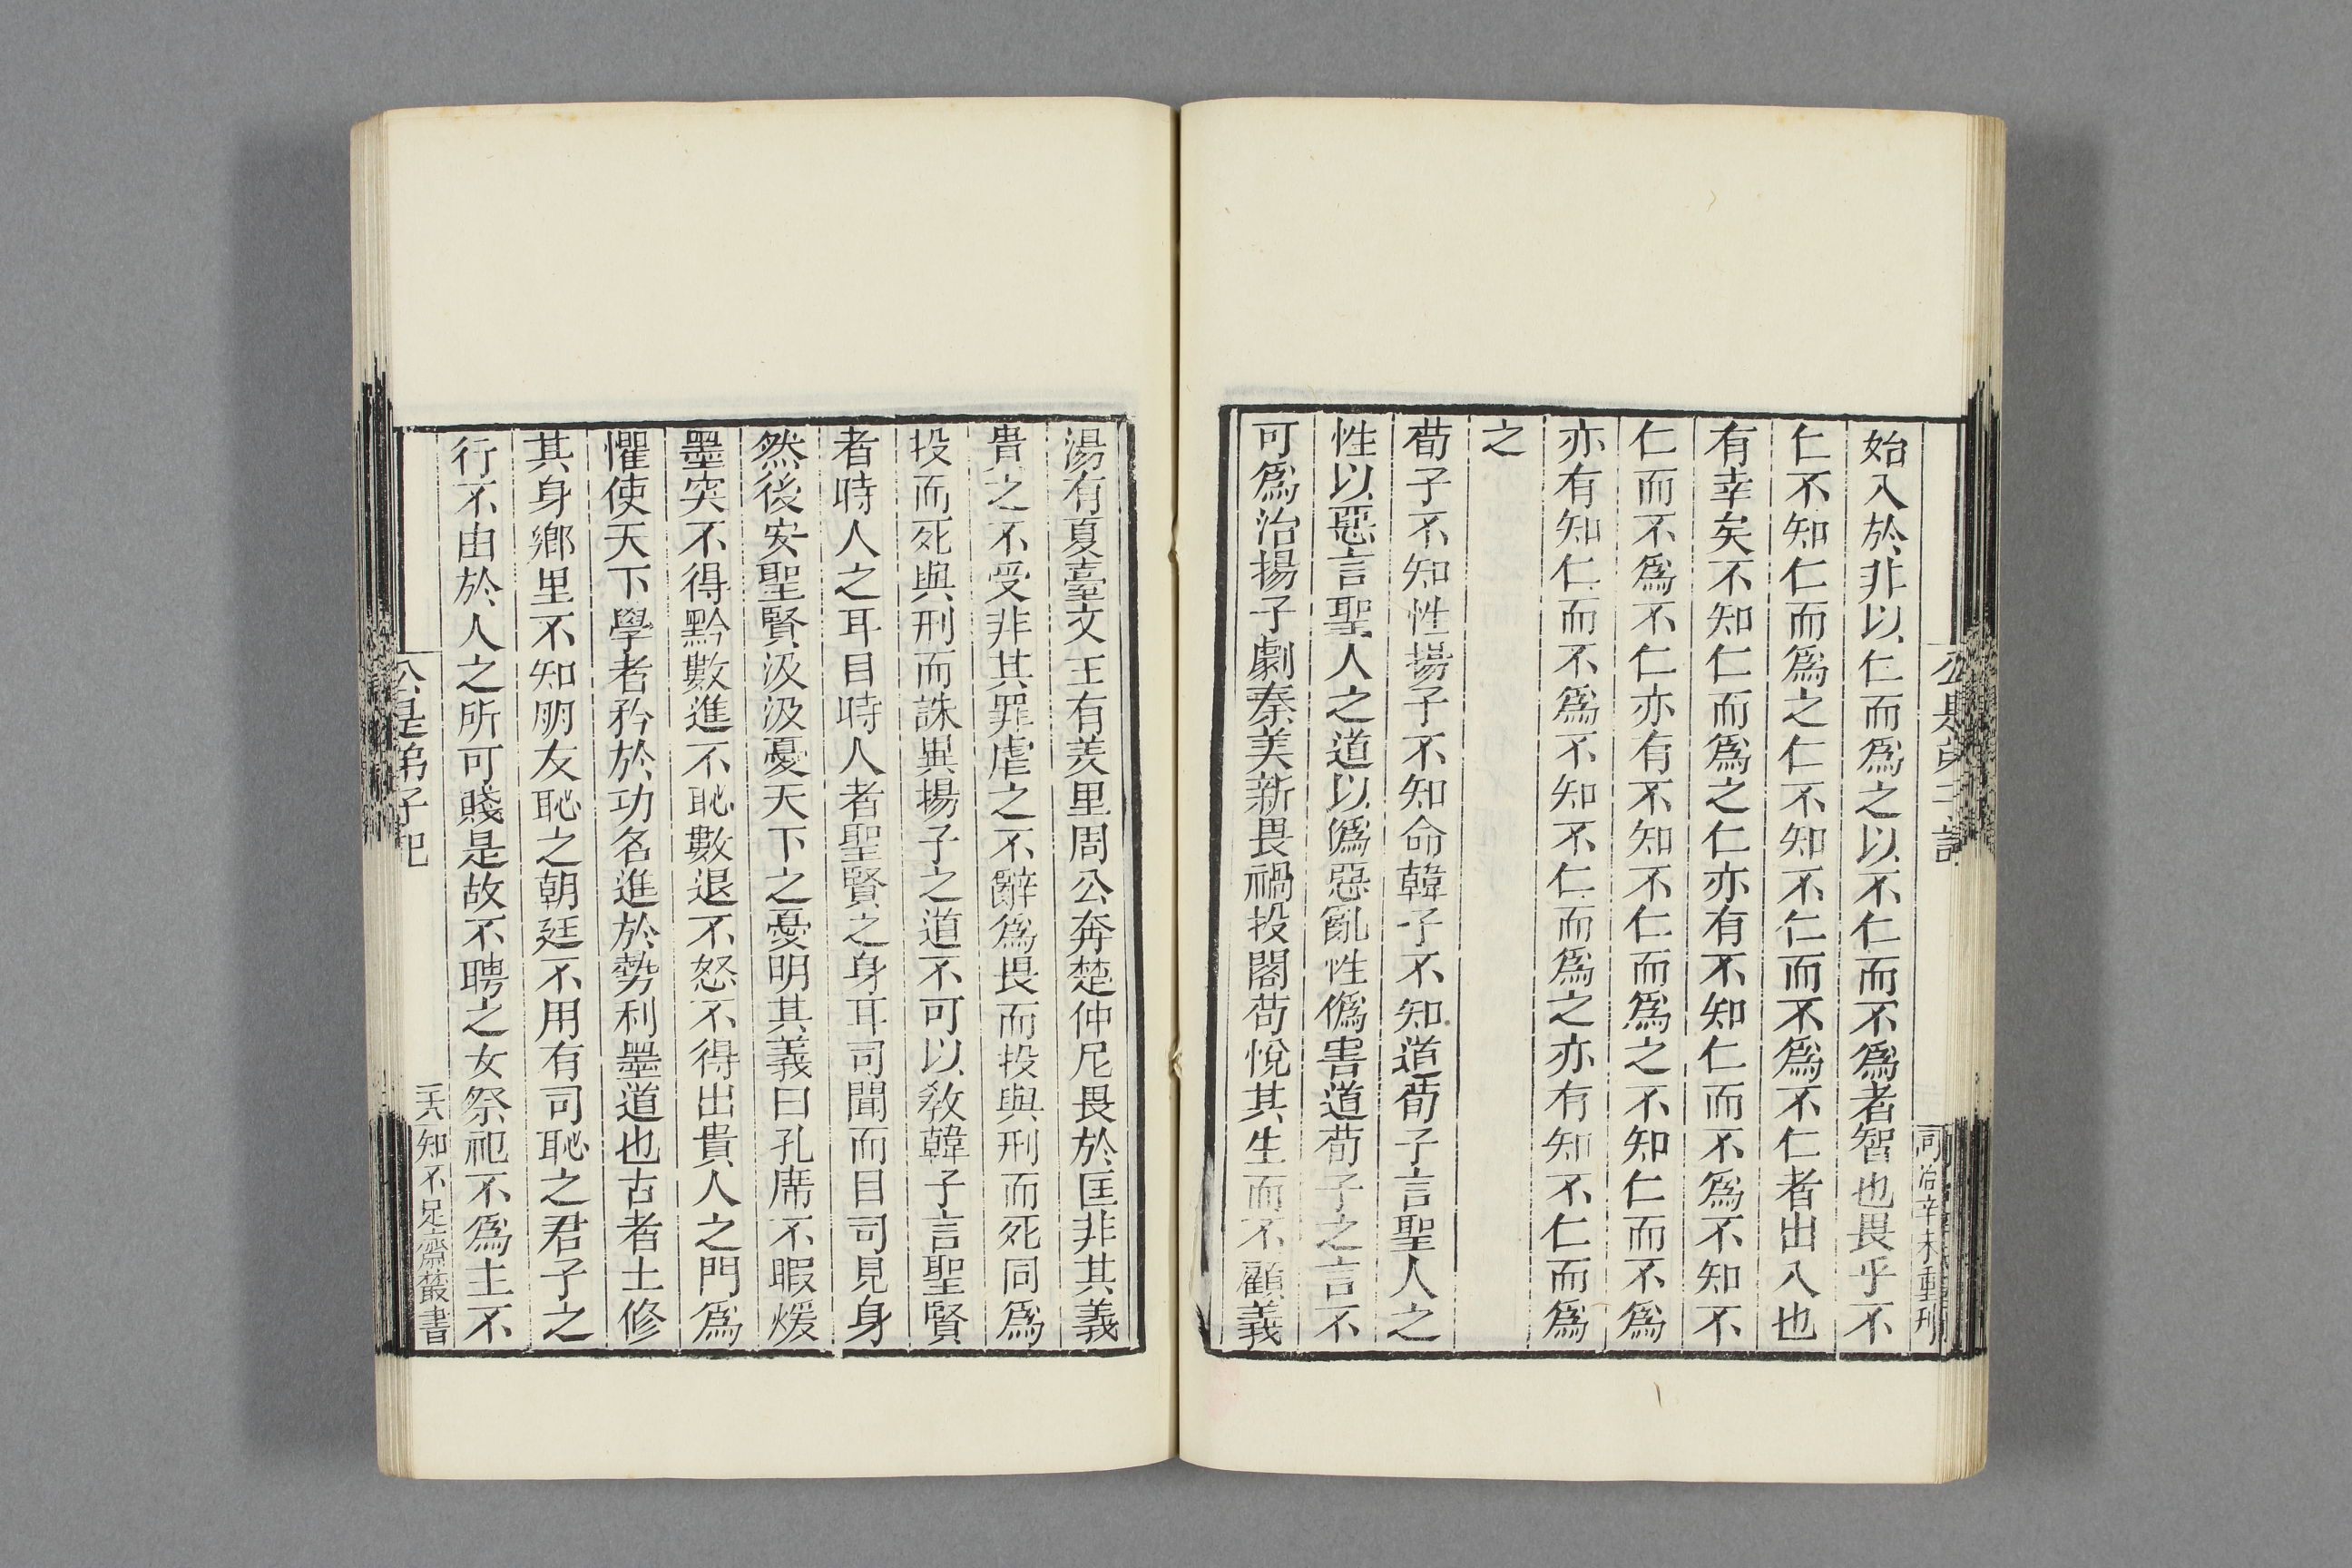 公是弟子記
同治辛未重刊
始入於非以仁而爲之以不仁而不爲者智也畏乎不
仁不知仁而爲之仁不知不仁而不爲不仁者出入也
有幸矣不知仁而爲之仁亦有不知仁而不爲不知不
仁而不爲不仁亦有不知不仁而爲之不知仁而不爲
亦有知仁而不爲不知不仁而爲之亦有知不仁而爲
之
荀子不知性揚子不知命韓子不知道荀子言聖人之
性以惡言聖人之道以僞惡亂性僞害道荀子之言不
可爲治揚子劇秦美新畏禍投閣苟悅其生而不顧義
湯有夏臺文王有羑里周公奔楚仲尼畏於匡非其義
貴之不受非其罪虐之不辭爲畏而投與刑而死同爲
投而死與刑而誅異揚子之道不可以敎韓子言聖賢
者時人之耳目時人者聖賢之身耳司聞而目司見身
然後安聖賢汲汲憂天下之憂明其義曰孔席不暇煖
墨突不得黔數進不恥數退不怒不得出貴人之門爲
懼使天下學者矜於功名進於勢利墨道也古者士修
其身鄉里不知朋友恥之朝廷不用有司恥之君子之
行不由於人之所可賤是故不聘之女祭祀不爲主不
公是弟子記
知不足齋叢書